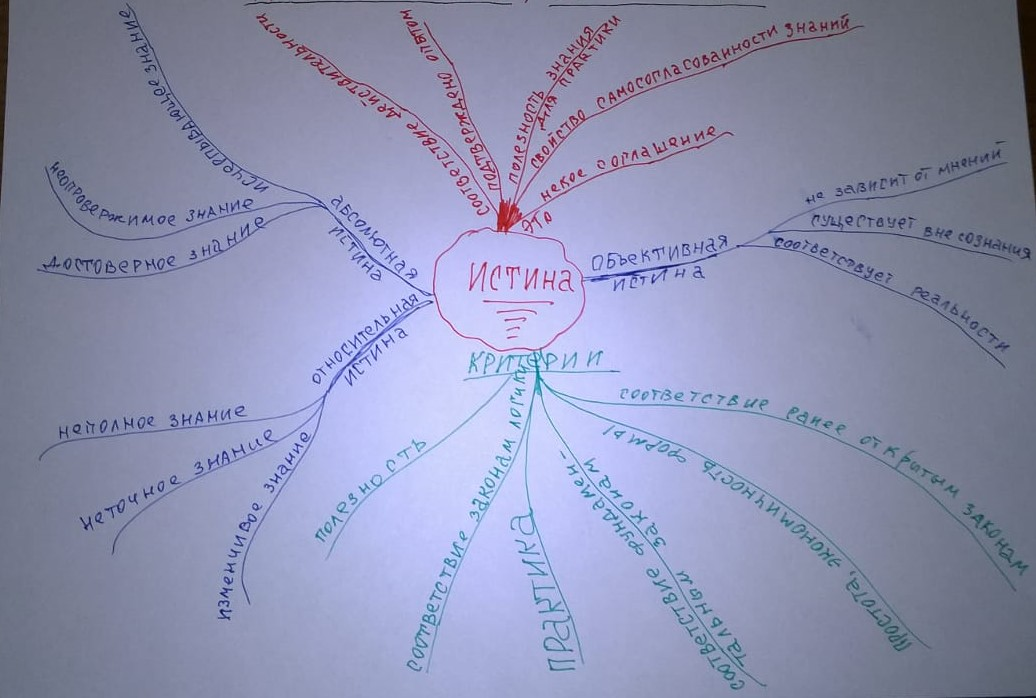 ИСТИНА
ЭТО
СООТВЕТСТВИЕ ДЕЙСТВИТЕЛЬНОСТИ
ПОДТВЕРЖДЕНО ОПЫТОМ
ПОЛЕЗНОСТЬ ЗНАНИЯ
ДЛЯ ПРАКТИКИ
СВОЙСТВО САМОСОГЛАСОВАННОСТИ ЗНАНИЙ
НЕКОЕ СОГЛАШЕНИЕ
ОБЪЕКТИВНАЯ
ИСТИНА
НЕ ЗАВИСИТ ОТ МНЕНИЙ
СУЩЕСТВУЕТ ВНЕ СОЗНАНИЯ
СООТВЕТСТВУЕТ РЕАЛЬНОСТИ
АБСОЛЮТНАЯ
ИСТИНА
ИСЧЕРПЫВАЮЩЕЕ ЗНАНИЕ
НЕОПРОВЕРЖИМОЕ ЗНАНИЕ
ДОСТОВЕРНОЕ ЗНАНИЕ
ОТНОСИТЕЛЬНАЯ
ИСТИНА
НЕПОЛНОЕ ЗНАНИЕ
НЕТОЧНОЕ ЗНАНИЕ
ИЗМЕНЧИВОЕ ЗНАНИЕ
КРИТЕРИИ
ПОЛЕЗНОСТЬ
СООТВЕТСТВИЕ ЗАКОНАМ ЛОГИКИ
ПРАКТИКА
СООТВЕТСТВИЕ ФУНДАМЕН-
ТАЛЬНЫМ ЗАКОНАМ
ПРОСТОТА, ЭКОНОМИЧНОСТЬ ФОРМЫ
СООТВЕТСТВИЕ РАНЕЕ ОТКРИТЫМ ЗАКОНАМ